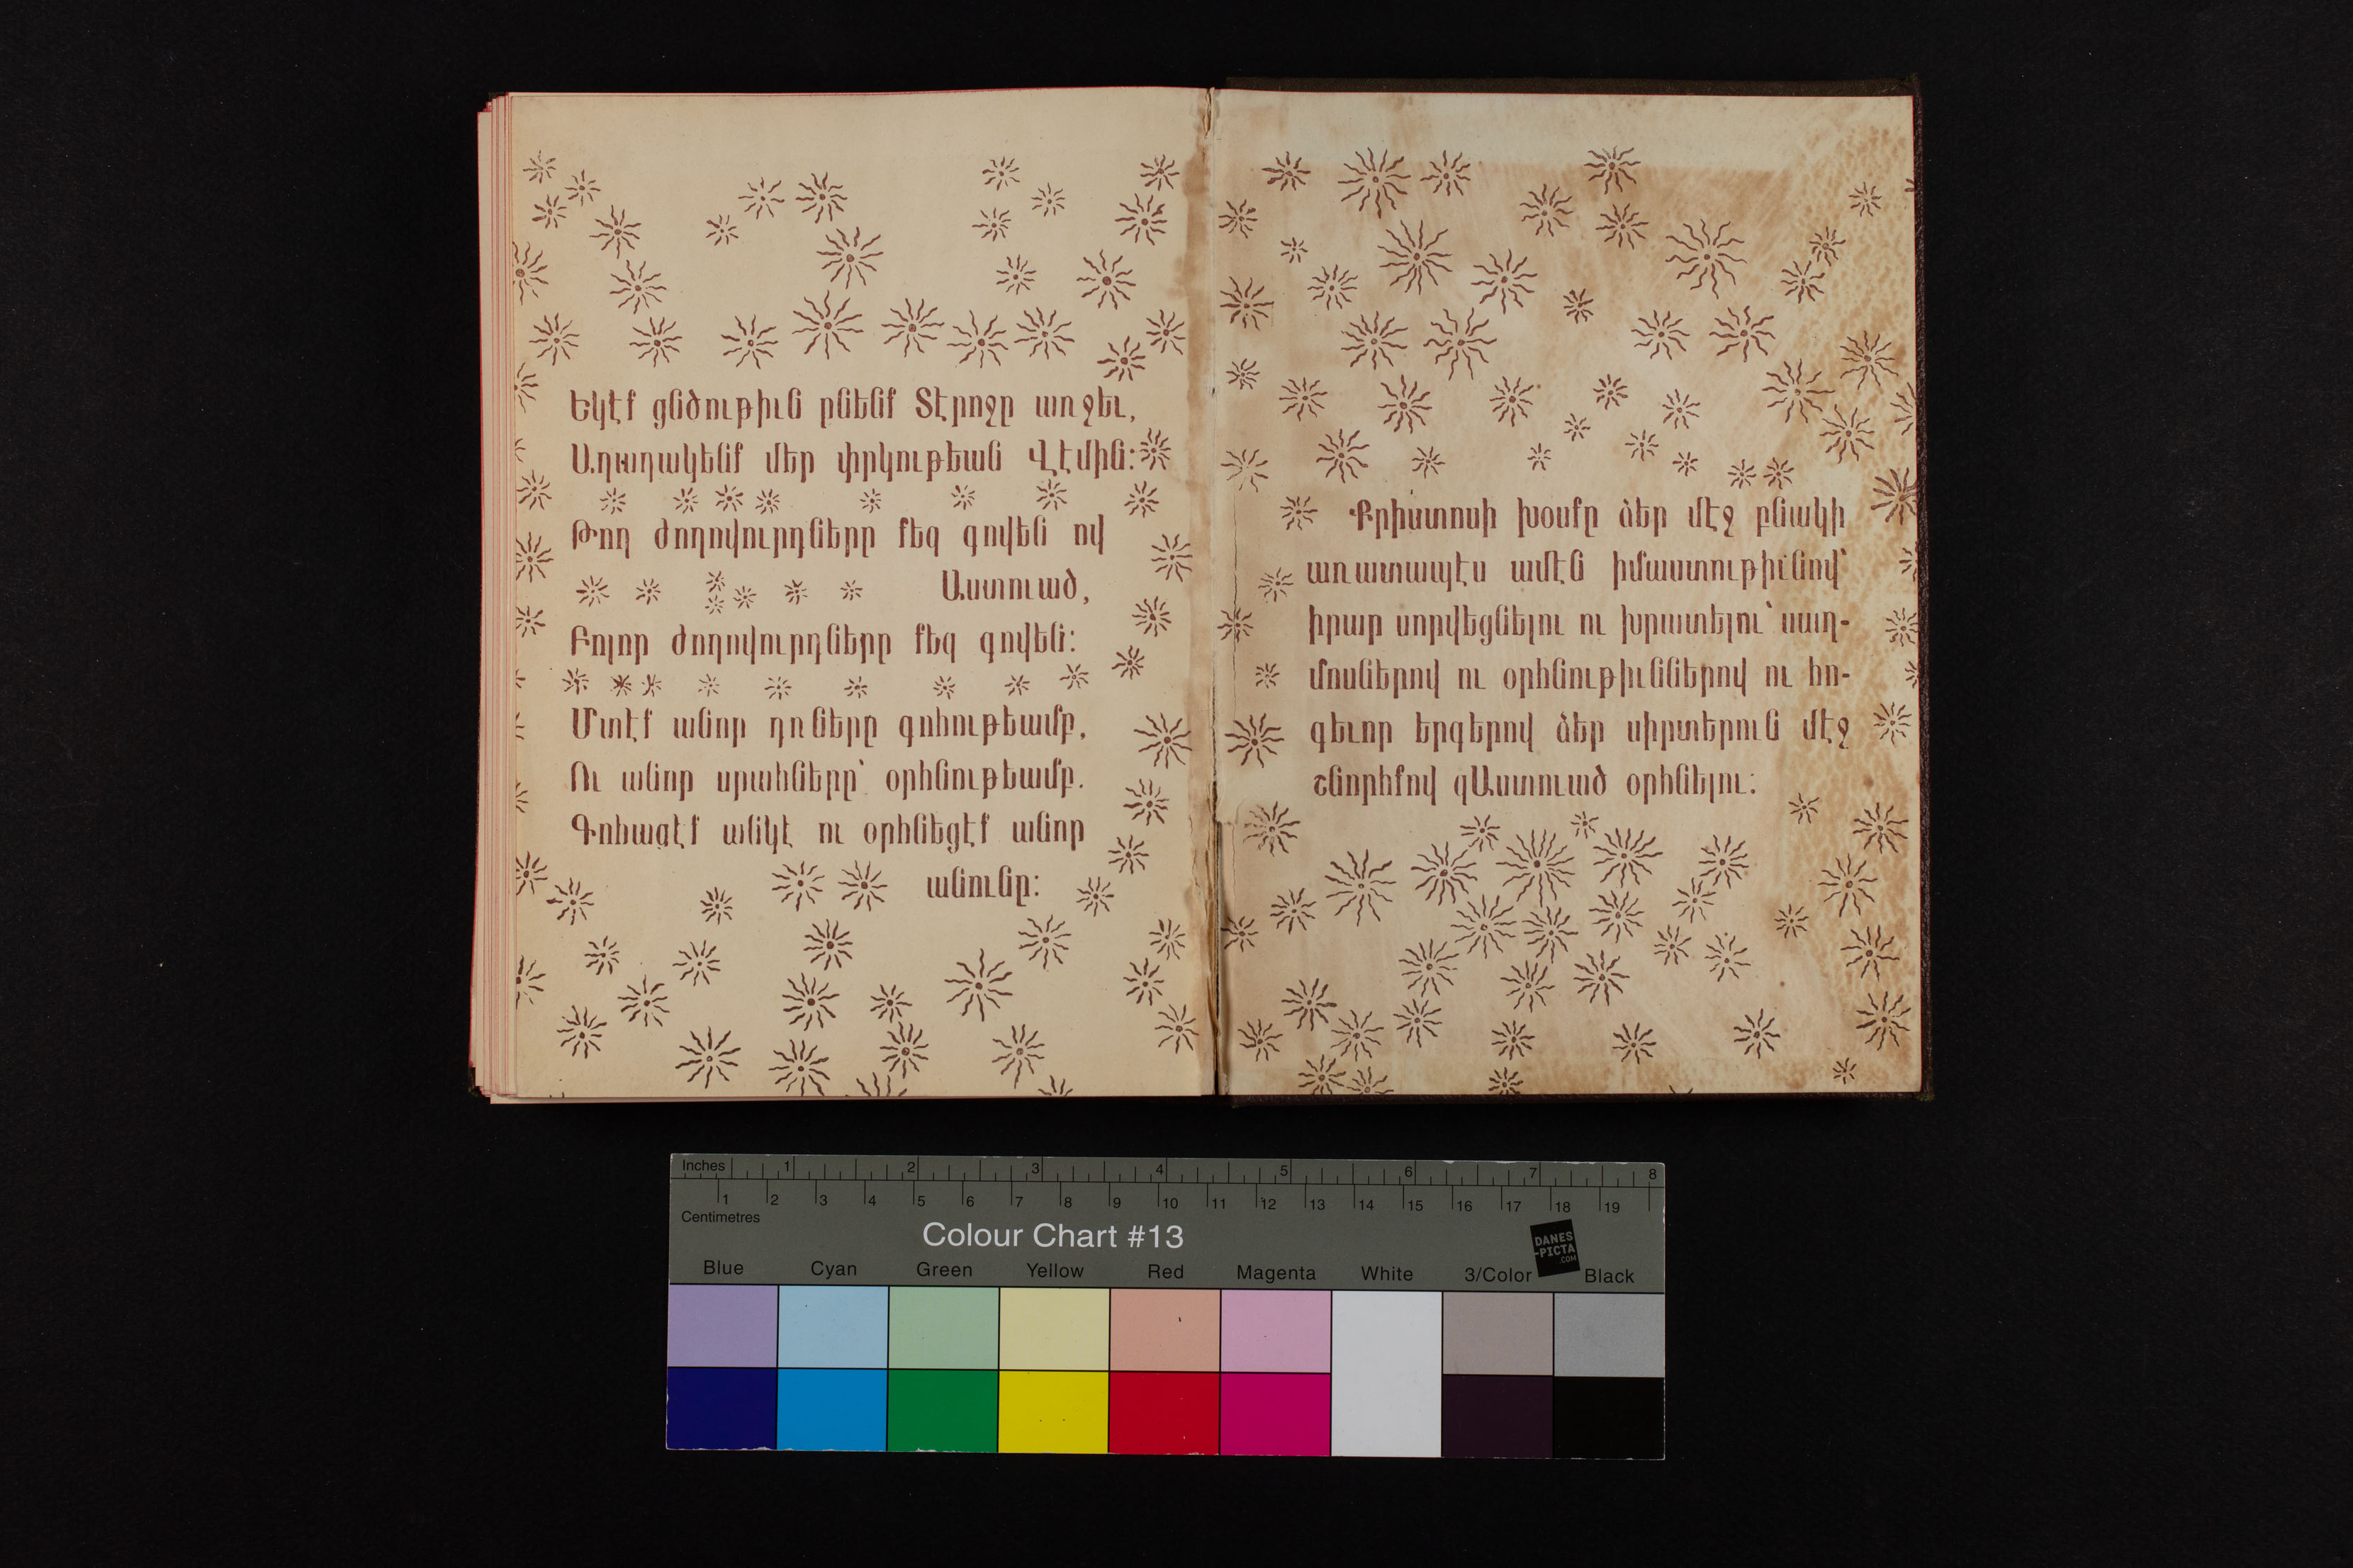 Եկէք ցնծութիւն ընենք Տէրոջը առջեւ,
Աղաղակենք մեր փրկութեան Վէմին։
Թող ժողովուրդները քեզ գովեն ով
Աստուած,
Բոլոր ժողովուրդները քեզ գովեն։
Մտէք անոր դռները գոհութեամբ,
Ու անոր սրահները՝ օրհնութեամբ.
Գոհացէք անկէ ու օրհնեցէք անոր
անունը։
Քրիստոսի խօսքը ձեր մէջ բնակի
առատապէս ամէն իմաստութիւնով՝
իրար սորվեցնելու ու խրատելու՝ սաղ-
մոսներով ու օրհնութիւններով ու հո-
գեւոր երգերով ձեր սիրտերուն մէջ
շնորհքով զԱստուած օրհնելու։
Inches 1 2 3 4 5 6 7 8
1 2 3 4 5 6 7 8 9 10 11 12 13 14 15 16 17 18 19
Centimetres
Colour Chart #13
DANES
-PICTA
.COM
Blue Cyan Green Yellow Red Magenta White 3/Color Black